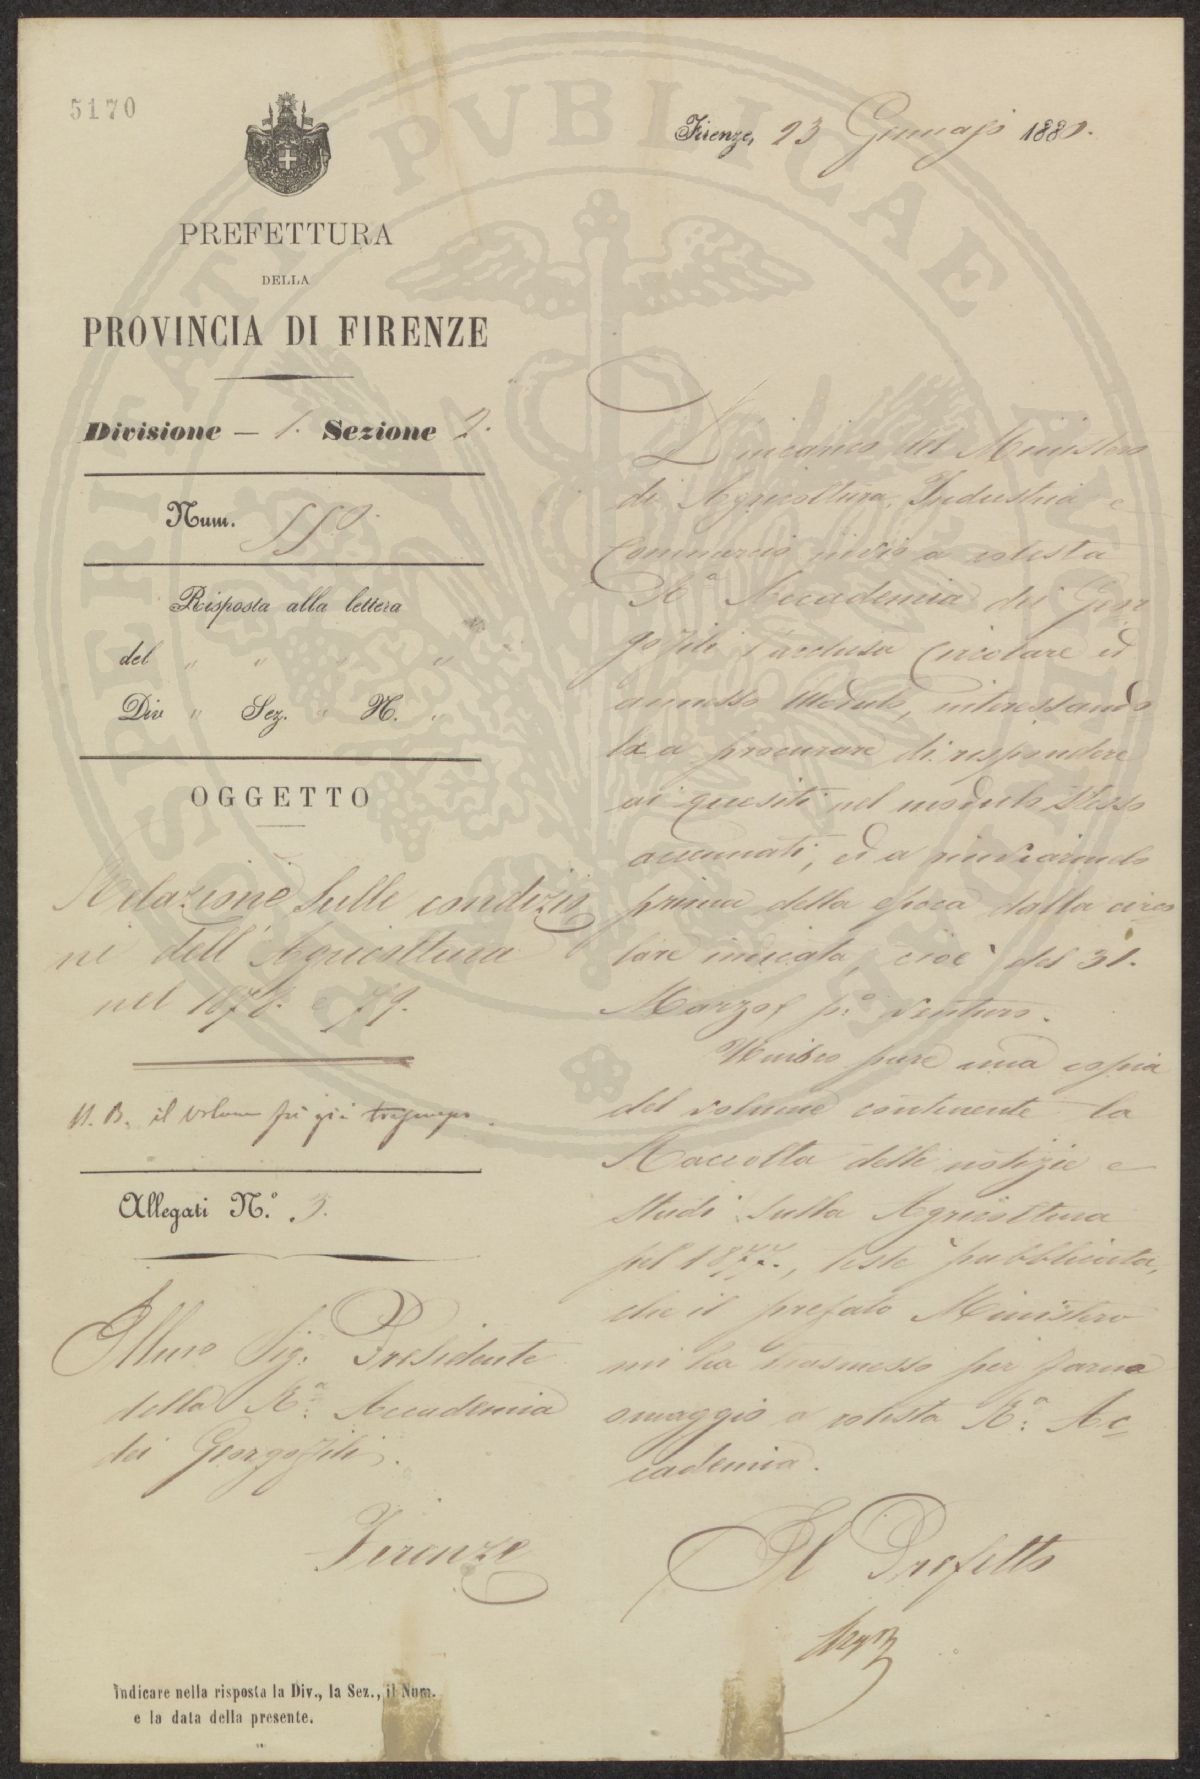 5170
Firenze, 23 Gennajo 1880.
PREFETTURA
DELLA
PROVINCIA DI FIRENZE
Divisione – 1. Sezione 2.
Num. 550.
Risposta alla lettera
del " " " "
Div " Sez. " N. "
OGGETTO
Relazione sulle condizio
ni dell'Agricoltura
nel 1878. e 79.
N.B. il volume fu già
Allegati N.º 3.
Illmo Sig: Presidente
della R.ª Accademia
dei Georgofili.
Firenze
D'incarico del Ministero
di Agricoltura, Industria e
Commercio invio a cotesta
R.ª Accademia dei Geor
gofili l'acclusa Circolare ed
annesso Modulo, interessando
la a procurare di rispondere
ai quesiti nel modulo stesso
accennati, ed a rinviarmelo
prima della epoca dalla circo
lare indicata, cioè del 31.
Marzo p.º venturo.
Unisco pure una copia
del volume contenente la
Raccolta delle notizie e
studi sulla Agricoltura
pel 1877., testè pubblicata,
che il prefato Ministero
mi ha trasmesso per farne
omaggio a cotesta R.ª Ac
cademia.
Il Prefetto
Indicare nella risposta la Div., la Sez., il Num.
e la data della presente.
PROSPERITATI PVBLICAE AVGENDAE